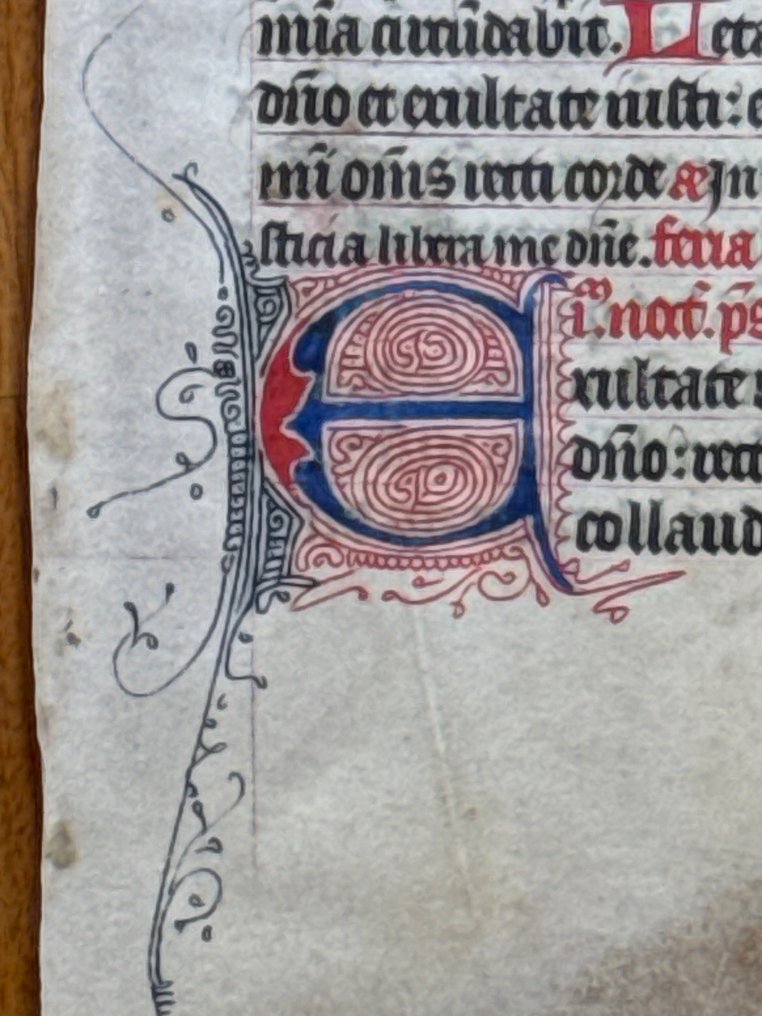 mīa circūdabit. Leta
dño et exultate iusti: e
mī om̄s recti corde æ In
sticia libera me dñe. feria
E i. noct. ps
xultate
dño: rect
collaud